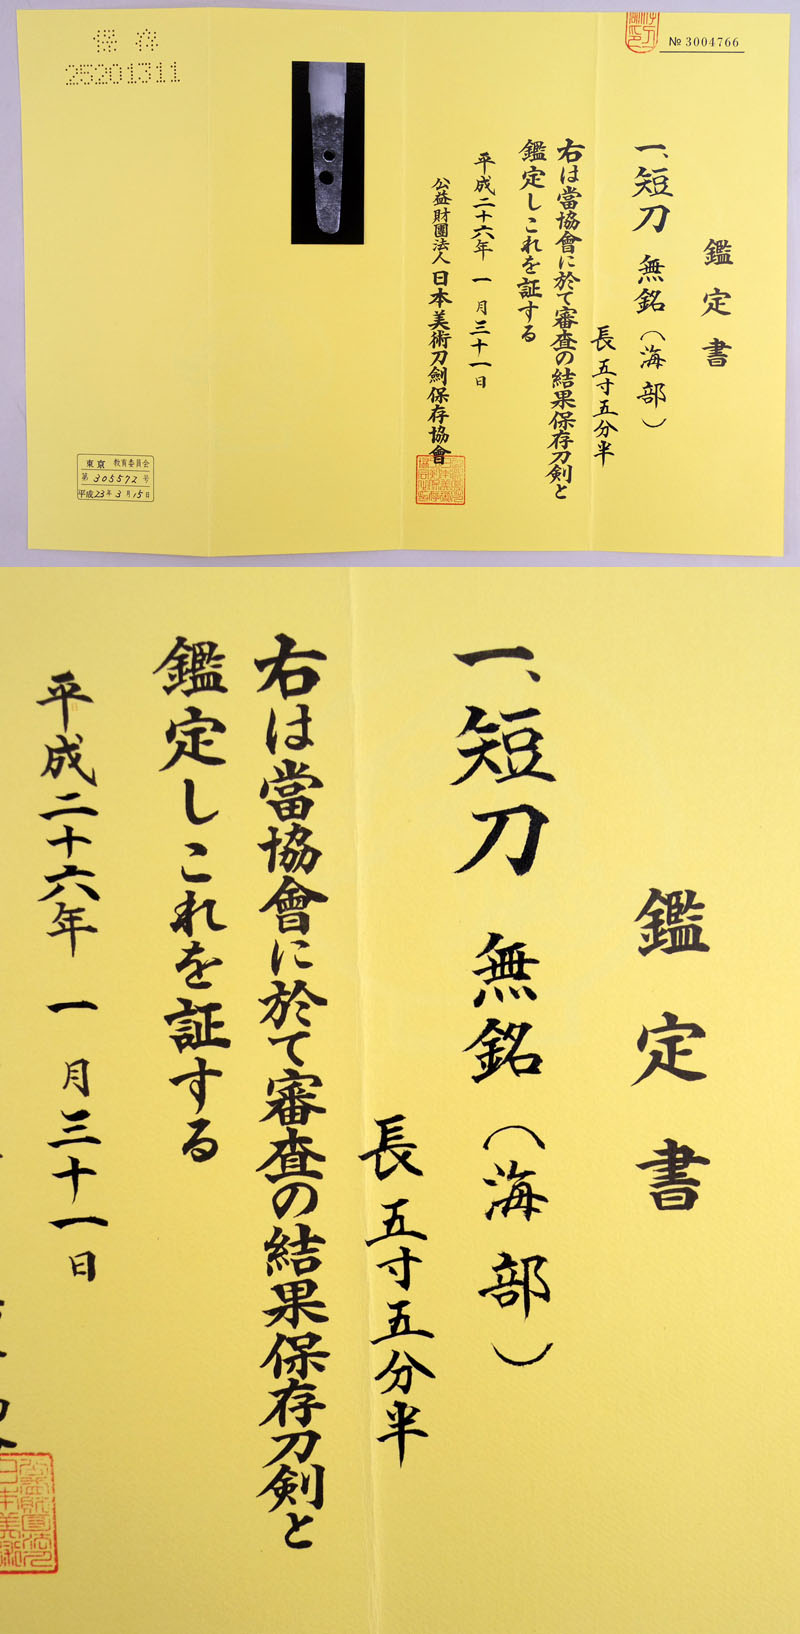 № 3004766
鑑定書
一、短刀 無銘（海部）
長 五寸五分半
右は當協會に於て審査の結果保存刀剣と
鑑定しこれを証する
平成二十六年 一月三十一日
公益財團法人 日本美術刀劍保存協會
保存
25201311
東京 教育委員会
第 305572 号
平成23年3月15日
鑑定書
一、短刀 無銘（海部）
長 五寸五分半
右は當協會に於て審査の結果保存刀剣と
鑑定しこれを証する
平成二十六年 一月三十一日